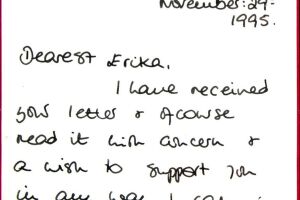 November: 29-
1995.
Dearest Erika,
I have received
your letter & ofcourse
read it with concern &
a wish to support you
in any way I can